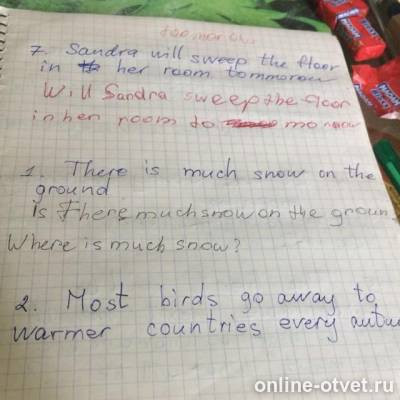 7. Sandra will sweep the floor
in her room tommorow
Will Sandra sweep the floor
in her room to morrow
1. There is much snow on the
ground
is There much snow on the groun
Where is much snow?
2. Most birds go away to
warmer countries every autu
online-otvet.ru